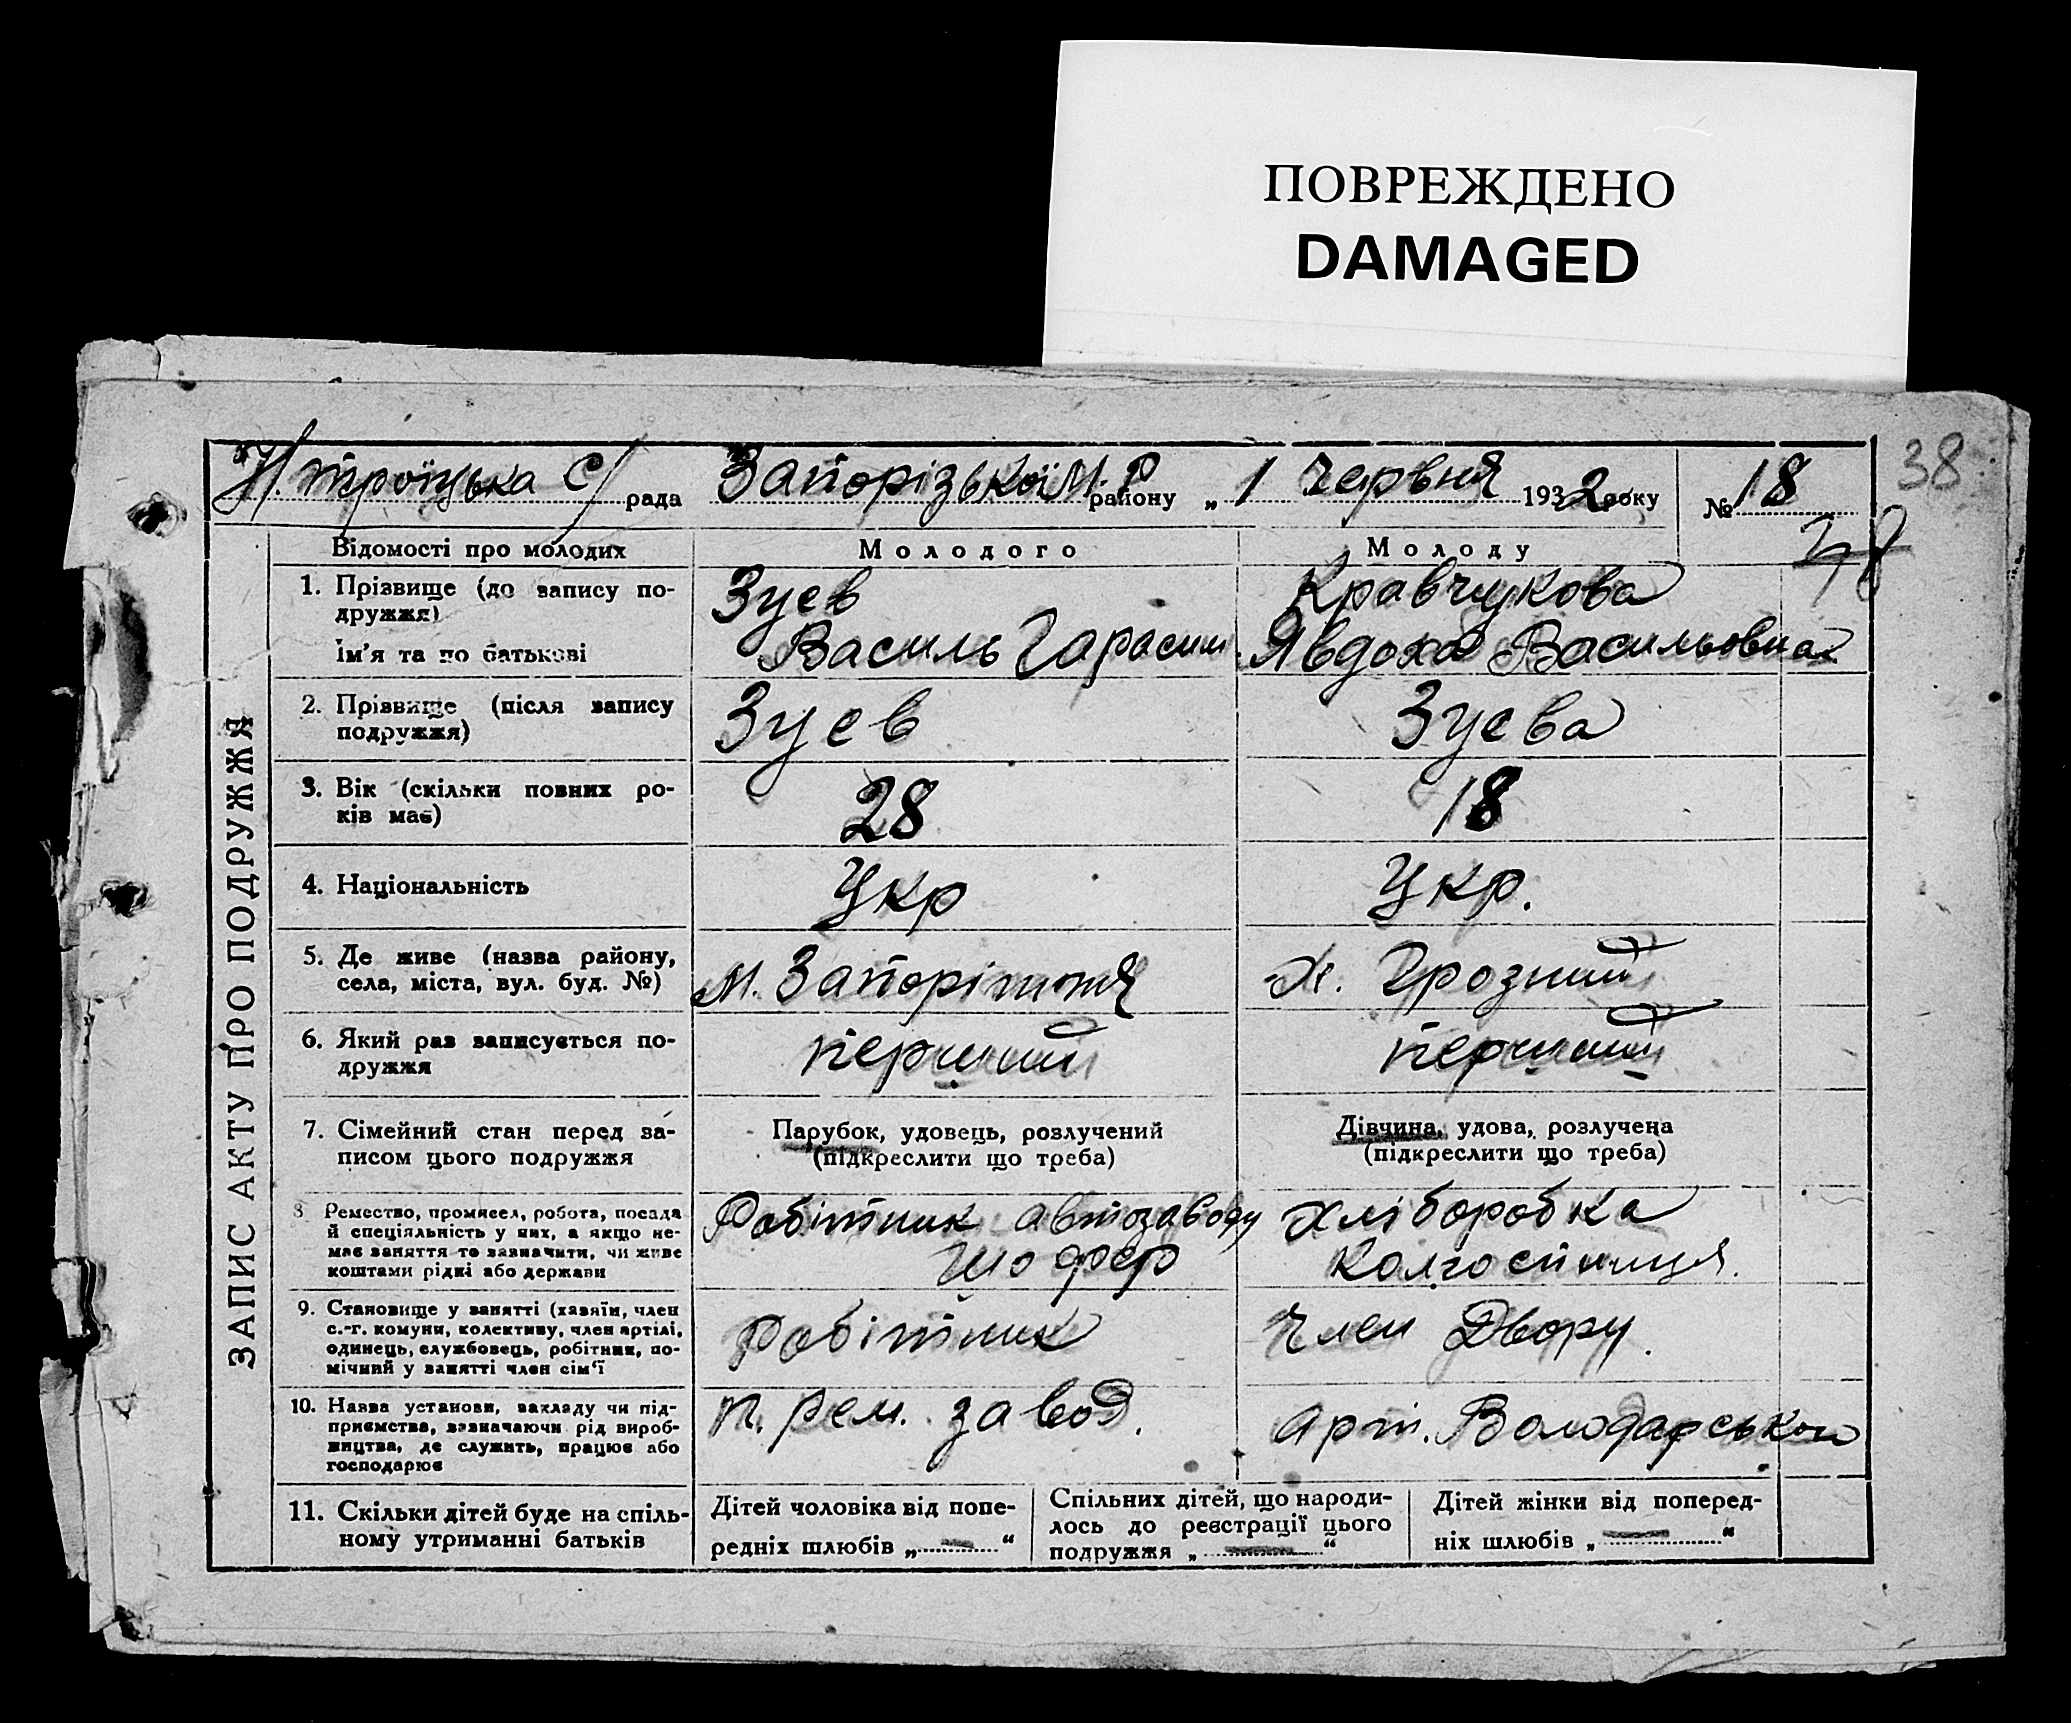 ПОВРЕЖДЕНО
DAMAGED
38
Н. троїцька с/рада Запорізької М. Р району „ 1 червня 1932 року № 18
ЗАПИС АКТУ ПРО ПОДРУЖЖЯ
Відомості про молодих Молодого Молоду
1. Прізвище (до запису по-
дружжя)
Зуєв
Кравчукова
Ім'я та по батькові
Василь Гарасим.
Явдоха Васильовна
2. Прізвище (після запису
подружжя)
Зуєв
Зуєва
3. Вік (скільки повних ро-
ків має)
28
18
4. Національність
Укр
Укр.
5. Де живе (назва району,
села, міста, вул. буд. №)
м. Запоріжжя
х. Грозний
6. Який раз записується по-
дружжя
перший
перший
7. Сімейний стан перед за-
писом цього подружжя
Парубок, удовець, розлучений
(підкреслити що треба)
Дівчина, удова, розлучена
(підкреслити що треба)
8 Ремество, промисел, робота, посада
й спеціяльність у них, а якщо не-
має заняття то зазначити, чи живе
коштами рідні або держави
Робітник автозаводу
шофер
Хліборобка
Колгоспниця.
9. Становище у занятті (хазяїн, член
с.-г. комуни, колективу, член артілі,
одинець, службовець, робітник, по-
мічний у занятті член сім'ї
Робітник
Член Двору.
10. Назва установи, закладу чи під-
приємства, зазначаючи рід вироб-
ництва, де служить, працює або
господарює
п. рем. завод.
Арт. Володарського
11. Скільки дітей буде на спіль-
ному утриманні батьків
Дітей чоловіка від попе-
редніх шлюбів „ — “
Спільних дітей, що народи-
лось до реєстрації цього
подружжя „ — “
Дітей жінки від поперед-
ніх шлюбів „ — “